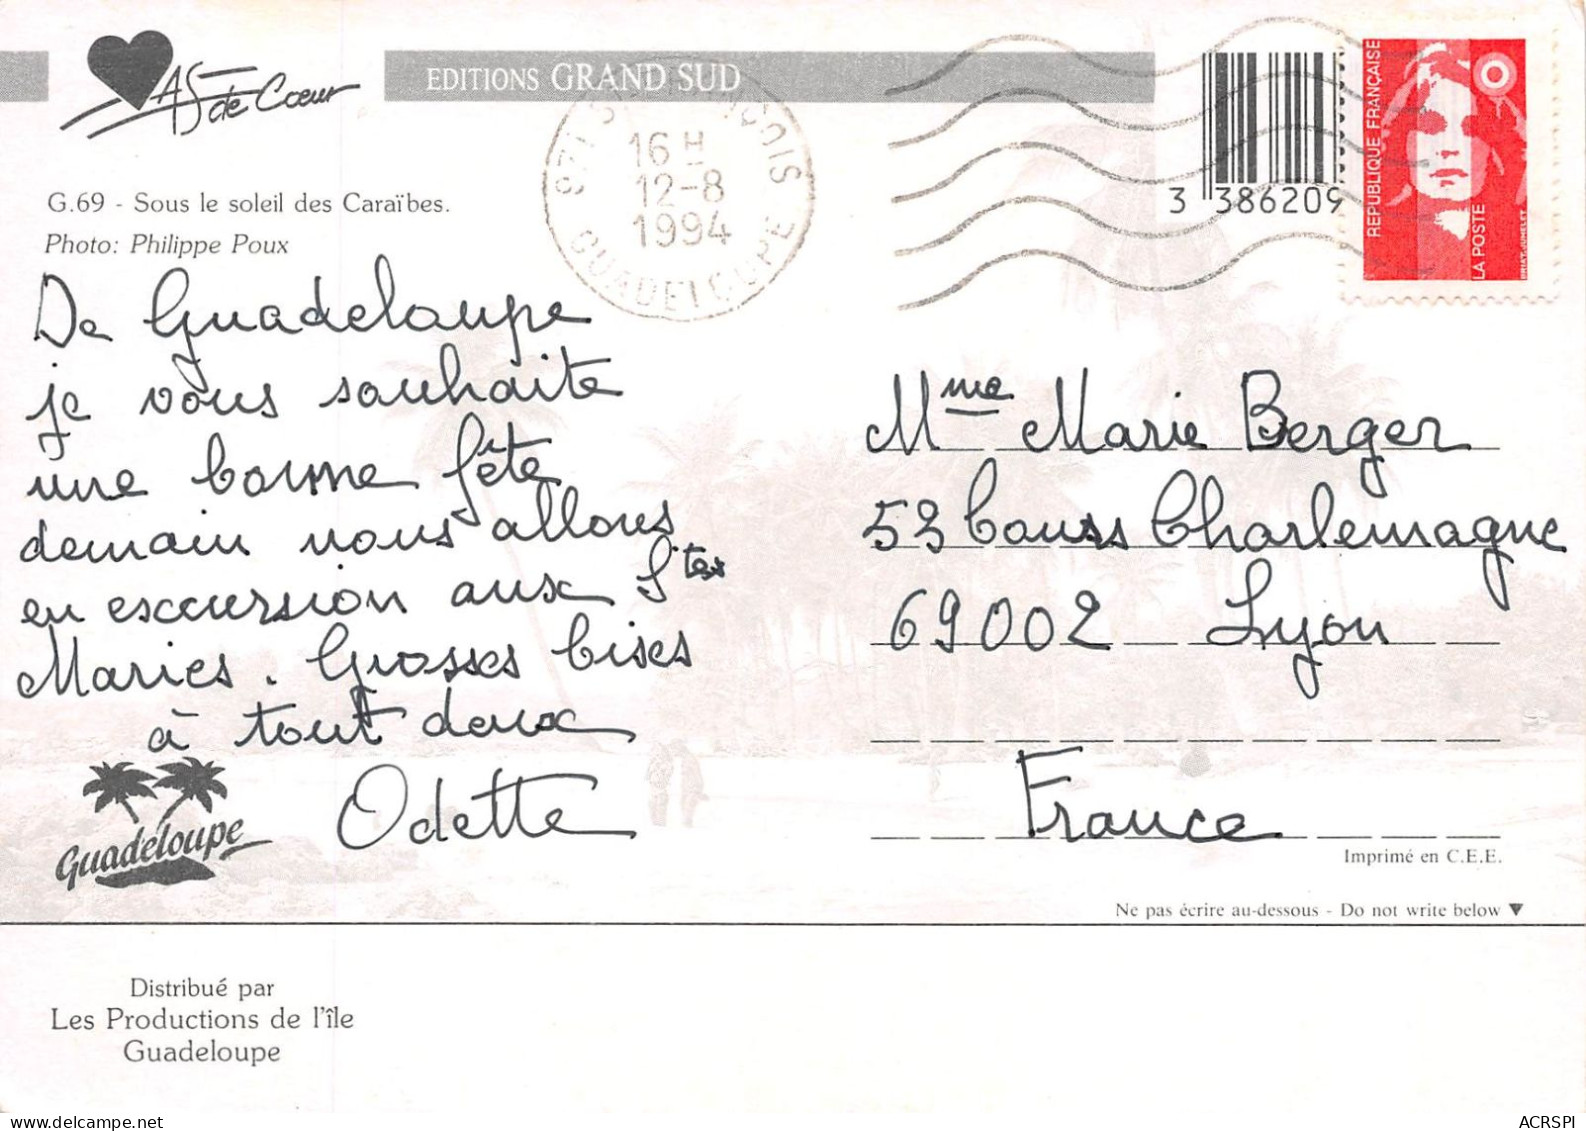 AS de Cœur
EDITIONS GRAND SUD
G.69 - Sous le soleil des Caraïbes.
Photo: Philippe Poux
16 H
12-8
1994
GUADELOUPE
3 386209
REPUBLIQUE FRANÇAISE
LA POSTE
BRIAT-JUMELET
De Guadeloupe
je vous souhaite
une bonne fête
demain nous allons
en excursion aux Stes
Maries. Grosses bises
à tout deux
Odette
Mme Marie Berger
53 Cours Charlemagne
69002 Lyon
France
Guadeloupe
Imprimé en C.E.E.
Ne pas écrire au-dessous - Do not write below ▼
Distribué par
Les Productions de l'île
Guadeloupe
ACRSPI